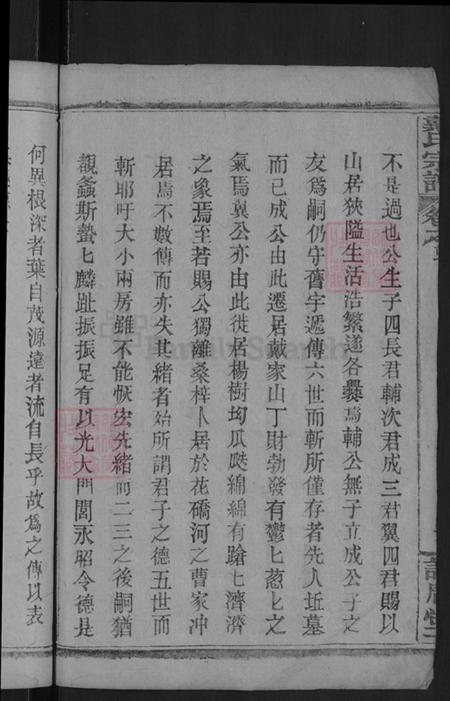 不是過也公生子四長君輔次君成三君翼四君賜以
山居狹隘生活浩繁遂各爨焉輔公無子立成公子之
友為嗣仍守舊宇遞傳六世而斬所僅存者先人坵墓
而已成公由此遷居戴家山丁財勃發有鬱匕葱匕之
氣焉翼公亦由此徙居楊樹坳瓜瓞綿綿有蹌匕濟濟
之象焉至若賜公獨離桑梓卜居於花礄河之曹家冲
居焉不數傳而亦失其緒者殆所謂君子之德五世而
斬耶吁大小兩房雖不能恢宏先緒而二三之後嗣猶
覩螽斯蟄匕麟趾振振足有以光大門閭永昭令德是
何異根深者葉自茂源遠者流自長乎故為之傳以表